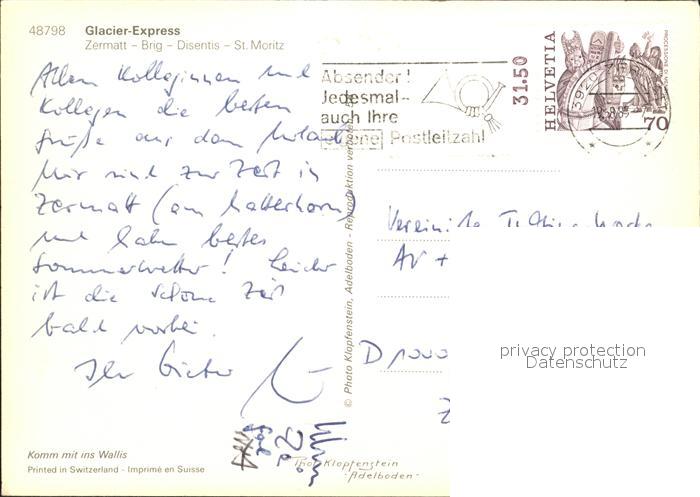 48798 Glacier-Express
Zermatt – Brig – Disentis – St. Moritz
Allen Kolleginnen und
Kollegen die besten
Grüße aus dem Urlaub
Wir sind zur Zeit in
Zermatt (am Matterhorn)
und haben bestes
Sommerwetter! Leider
ist die schöne Zeit
bald vorbei.
Ihr
Komm mit ins Wallis
Printed in Switzerland - Imprimé en Suisse
© Photo Klopfenstein, Adelboden - Reproduktion verboten
Absender!
Jedesmal-
auch Ihre
eigene Postleitzahl
31.50
HELVETIA
70
3920
AV +
D 1000
Photo Klopfenstein
-Adelboden-
privacy protection
Datenschutz